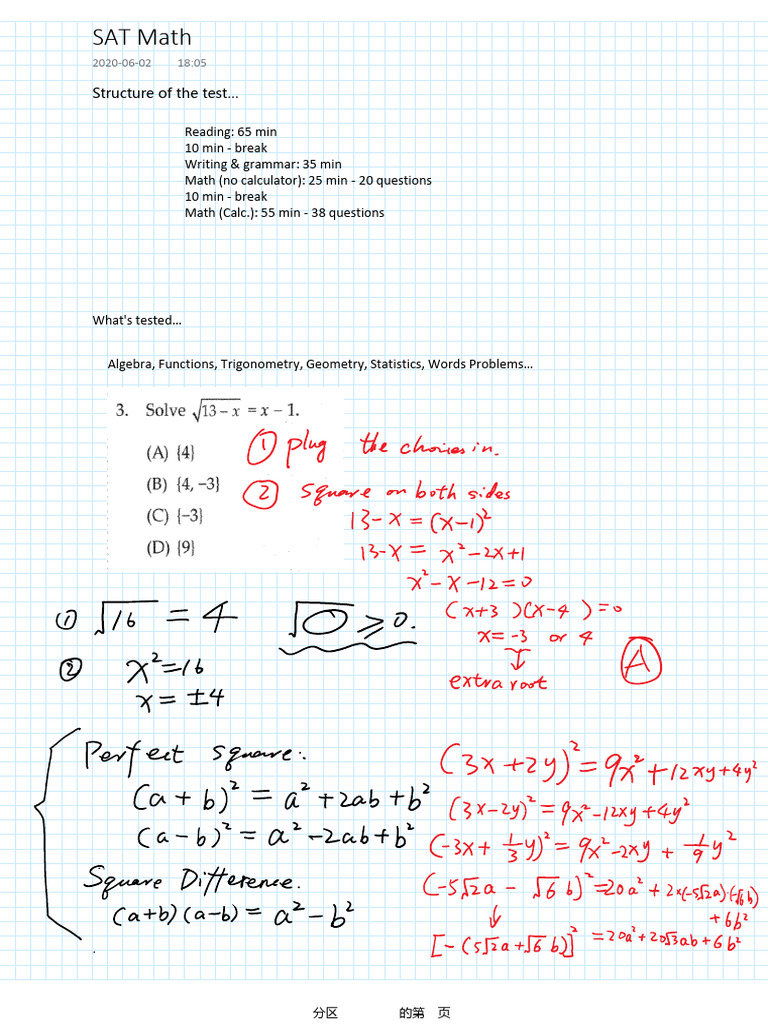 SAT Math
2020-06-02 18:05
Structure of the test...
Reading: 65 min
10 min - break
Writing & grammar: 35 min
Math (no calculator): 25 min - 20 questions
10 min - break
Math (Calc.): 55 min - 38 questions
What's tested...
Algebra, Functions, Trigonometry, Geometry, Statistics, Words Problems...
3. Solve √(13 – x) = x – 1.
(A) {4}
(B) {4, –3}
(C) {–3}
(D) {9}
① plug the choices in.
② square on both sides
13-x = (x-1)²
13-x = x²-2x+1
x²-x-12=0
(x+3)(x-4)=0
x=-3 or 4
↓
extra root
A
① √16 = 4 √○ ≥ 0.
② x²=16
x = ±4
Perfect square:
(a+b)² = a²+2ab+b²
(a-b)² = a²-2ab+b²
Square Difference.
(a+b)(a-b) = a²-b²
(3x+2y)² = 9x²+12xy+4y²
(3x-2y)² = 9x²-12xy+4y²
(-3x+1/3y)² = 9x²-2xy+1/9y²
(-5√2a - √6b)² = 20a²+2×(-5√2a)·(-√6b)
+6b²
↓
[-(5√2a+√6b)]² = 20a²+20√3ab+6b²
分区 的第 页